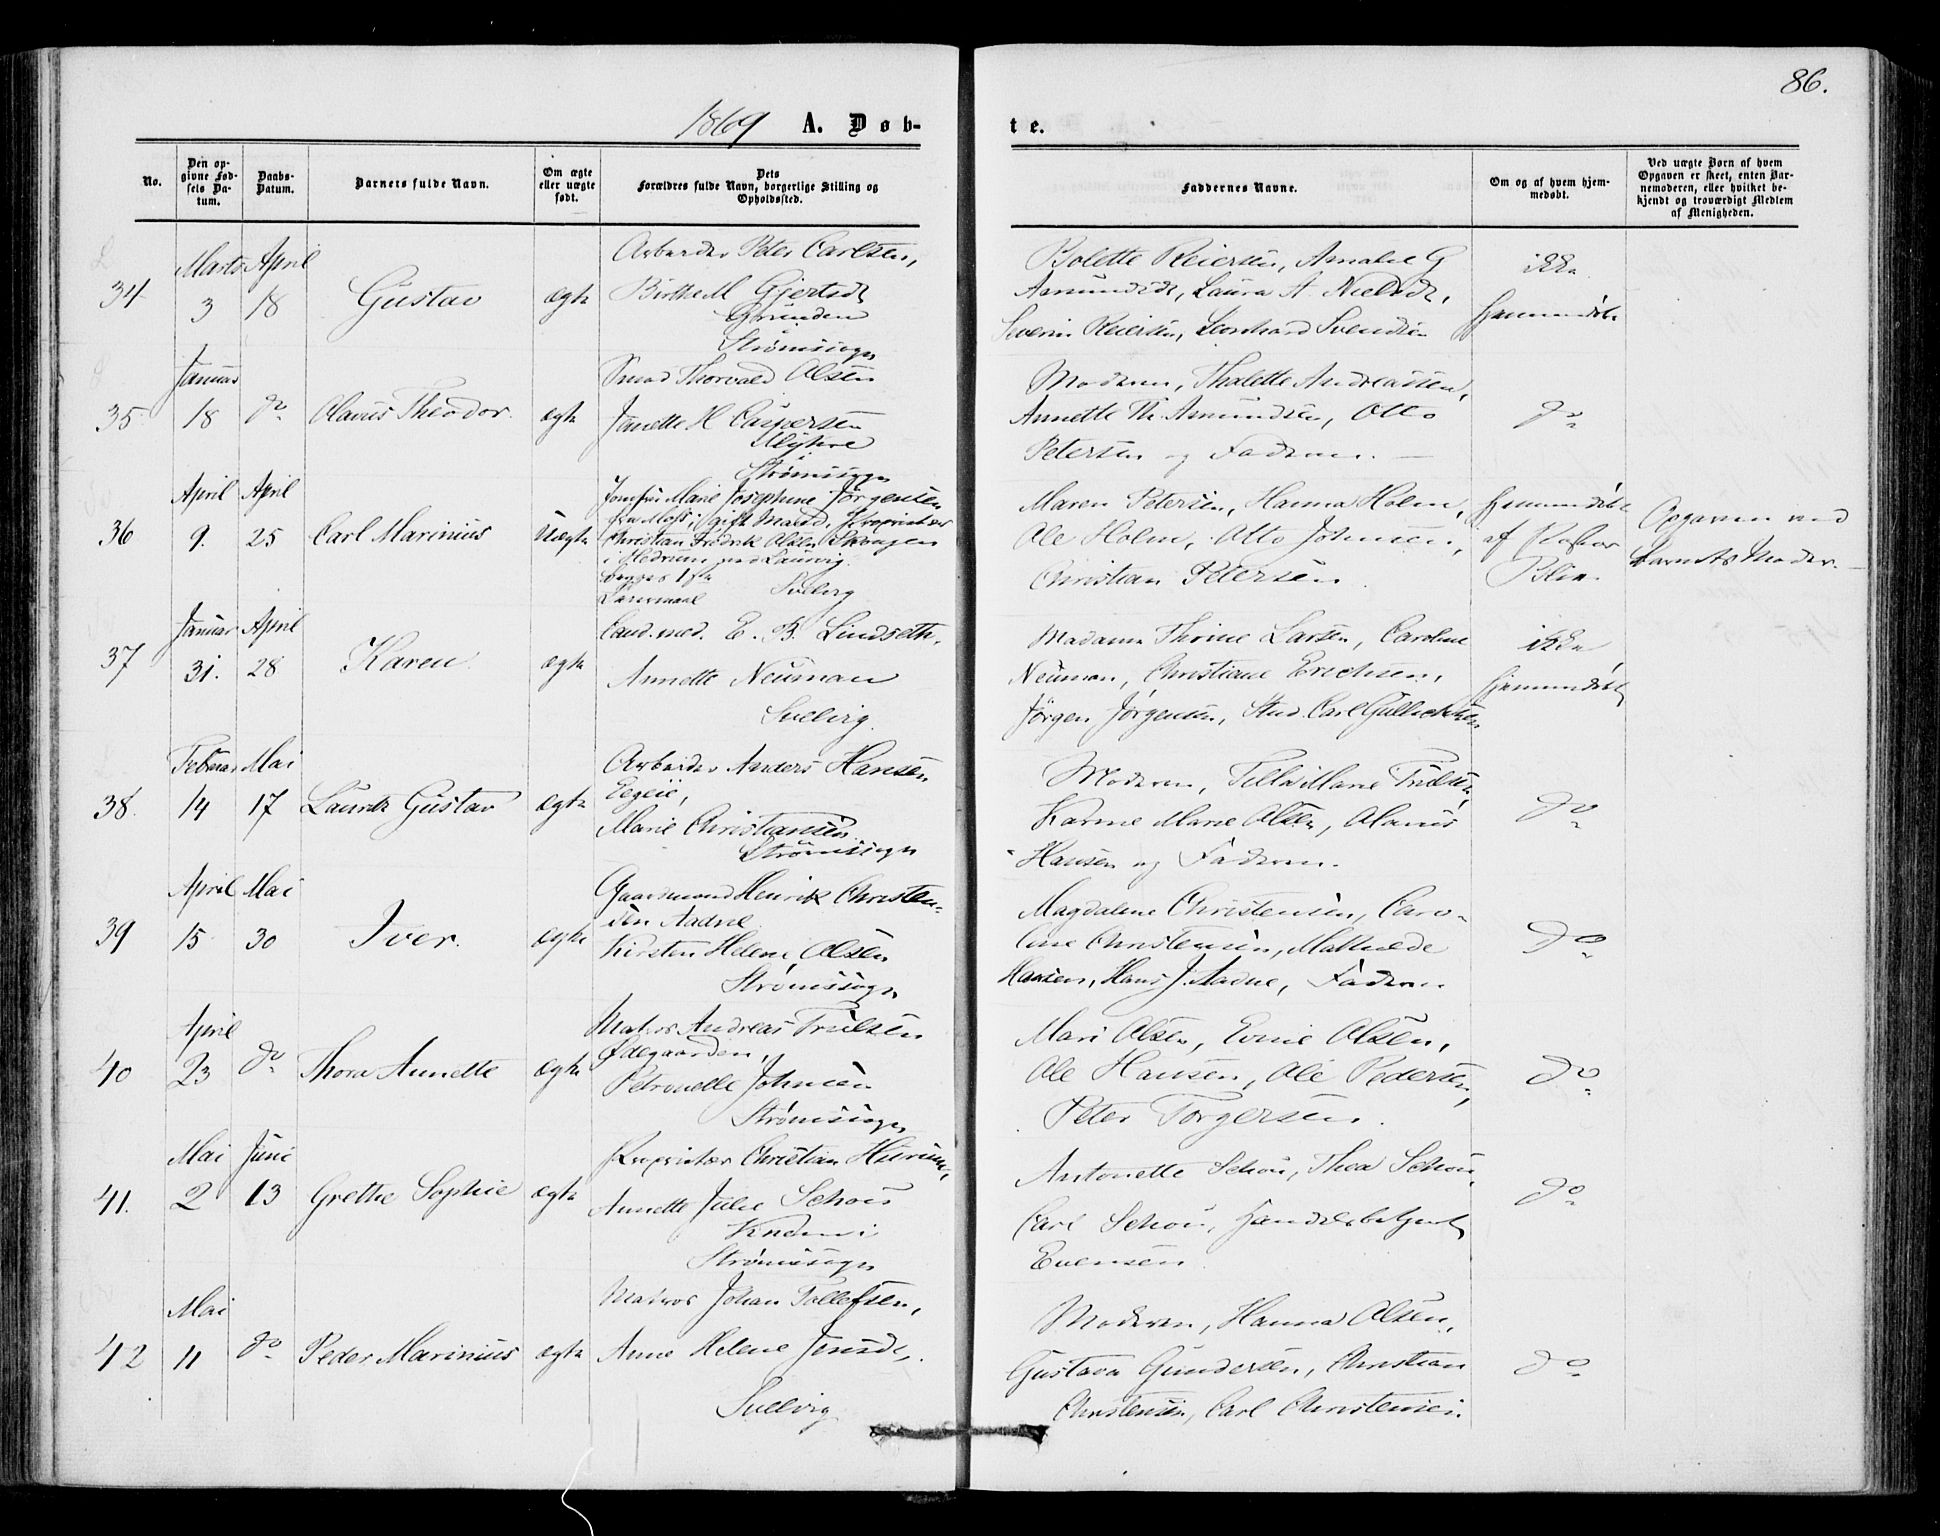 86.
1869 A. Døb-
te.
No.
Den op-
givne Fød-
sels Da-
tum.
Daabs-
Datum.
Barnets fulde Navn.
Om ægte
eller uægte
født.
Dets
Forældres fulde Navn, borgerlige Stilling og
Opholdssted.
Faddernes Navne.
Om og af hvem hjem-
medøbt.
Ved uægte Børn af hvem
Opgaven er skeet, enten Bar-
nemoderen, eller hvilket be-
kjendt og troværdigt Medlem
af Menigheden.
34
Marts
3
April
18
Gustav
ægte
Arbeider Peter Carlsen,
Birthe M Gjertsdt
Grunden
i
Strømssogn
Bolette Reiersen, Annabel G
Asmundsdt, Laura A. Nielsdt,
Severin Reiersen, Leonhard Svendsen
ikke
hjemmedøbt
35.
Januar
18
do
Olavus Theodor.
ægte
Smed Thorvald Olsen
Janette H Caspersen
i
Strømssogn
Moderen, Thalette Andreassen,
Annette Th. Asmundsen, Otto
Petersen og Faderen.
do
36
April
9.
April
25
Carl Marinius
Uægte
Jomfru Marie Josephine Jørgensen
fra Moss; gift Mand, Proprietær
Christian Fredrik Olsen Skougen
i Hedrum ved Laurvig.
begges 1ste
Leiermaal
Svelvig
Maren Petersen, Hanna Holm,
Ole Holm, Otto Johnsen,
Christian Petersen.
hjemmedøbt
af Pastor
Blix.
Opgaven ved
barnets Moder.
37
Januar
31.
April
28
Karen
ægte
Cand. med. E. B. Lindseth.
Annette Neuman
Svelvig.
Madame Thrine Larsen, Caroline
Neuman, Christiane Erichsen,
Jørgen Jørgensen, Stud. Carl Gulbr
ikke
hjemmedøbt
38.
Februar
14
Mai
17
Lauritz Gustav
ægte
Arbeider Anders Hansen
Eegeie,
Marie Christiansen.
Strømssogn
Moderen, Marie Trulsen,
Karine Marie Olsen, Olanus
Hansen og Faderen.
do
39
April
15
Mai
30
Iver.
ægte
Gaardmand Henrik Christen-
sen Aadne
Kirsten Helene Olsen
Strømssogn
Magdalene Christensen, Caro-
line Christensen, Mathilde
Hansen, Hans J. Aadne, Faderen
do
40
April
23
do
Thora Annette
ægte
Matros Andreas Trulsen
Ødegaarden,
Petronelle Johnsen
Strømssogn
Mari Olsen, Evine Olsen,
Ole Hansen, Ole Pedersen,
Peter Torgersen.
do
41.
Mai
2
Juni
13
Grethe Sophie
ægte
Proprietær Christian Hurum,
Annette Julie Schou
Knem i
Strømssogn
Antonette Schou, Thea Schou,
Carl Schou, Handelsbetjent
Evensen
do
42
Mai
11
do
Peder Marinius
ægte
Matros Johan Tollefsen,
Anne Helene Jensdt.
Svelvig
Moderen, Hanna Olsen,
Gustava Gundersen, Christian
Christensen, Carl Christensen.
do